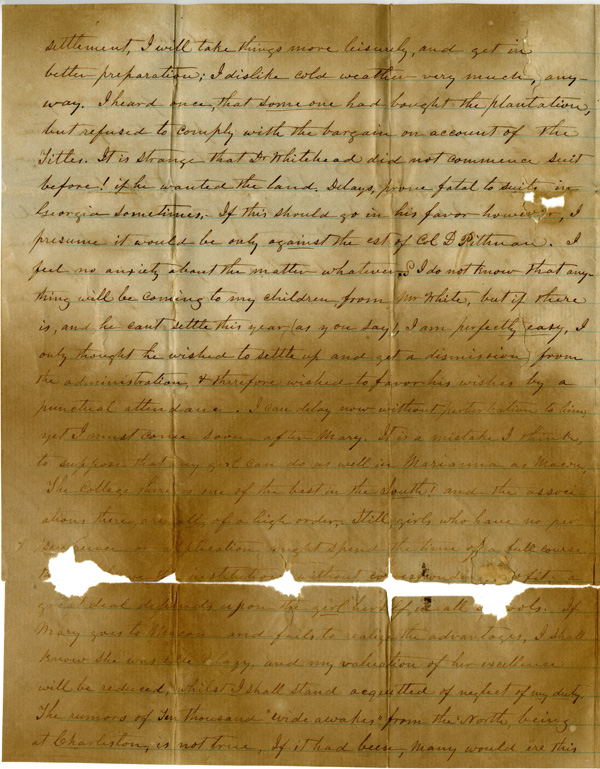 settlement, I will take things more leisurely, and get in
better preparation; I dislike cold weather very much, any-
way. I heard once, that some one had bought the plantation,
but refused to comply with the bargain on account of the
Titles. It is strange that Dr Whitehead did not commence suit
before! if he wanted the land. Delays, prove fatal to suits in
Georgia sometimes,- If this should go in his favor however, I
presume it would be only against the est of Col D Pittman. I
feel no anxiety about the matter whatever. I do not know that any-
thing will be coming to my children from Mr White, but if there
is, and he cant settle this year, (as you say), I am perfectly easy, I
only thought he wished to settle up and get a dismission from
the administration, & therefore wished to favor his wishes by a
punctual attendance. I can delay now without to him,
yet I must come soon after Mary. It is a mistake I think,
to suppose that any girl can do as well in Marianna as Macon,
The College there is one of the best in the South! and the associ
ations there, are all, of a high order, Still girls who have no per
or application might spend the time of a full course
without
great deal depends upon the girl herself in all schools. If
Mary goes to Macon and fails to realize the advantages, I shall
know she was idle & lazy, and my valuation of her excellence
will be reduced, whilst I shall stand acquitted of neglect of my duty.
The rumors of Ten thousand "wide awakes" from the North, being
at Charleston, is not true, If it had been, many would ere this